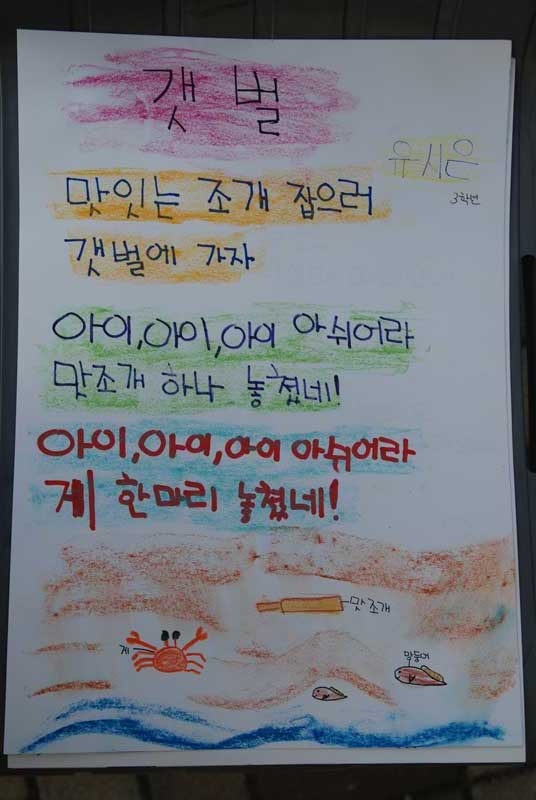 갯벌
유시은
3학년
맛있는 조개 잡으러
갯벌에 가자
아이,아이,아이 아쉬어라
맛조개 하나 놓쳤네!
아이,아이,아이 아쉬어라
게 한마리 놓쳤네!
맛조개
게
망둥어